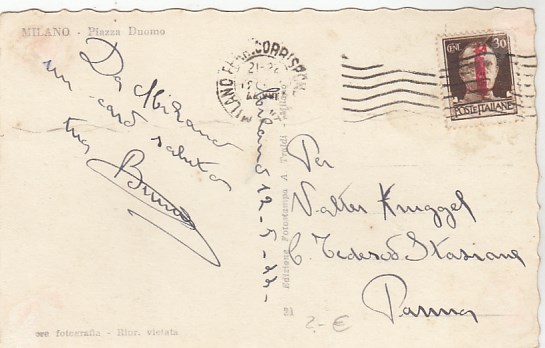 MILANO - Piazza Duomo
Da Milano
un caro saluto
tuo
Bruno
Milano 12-5-
Edizione Fotostampa A. Traldi - Milano
MILANO FERR. CORRISP.
21-22
CENT. 30
POSTE ITALIANE
Per
Valter Kruggel
C. Tedesco Stazione
Parma
2.- €
vera fotografia - Ripr. vietata